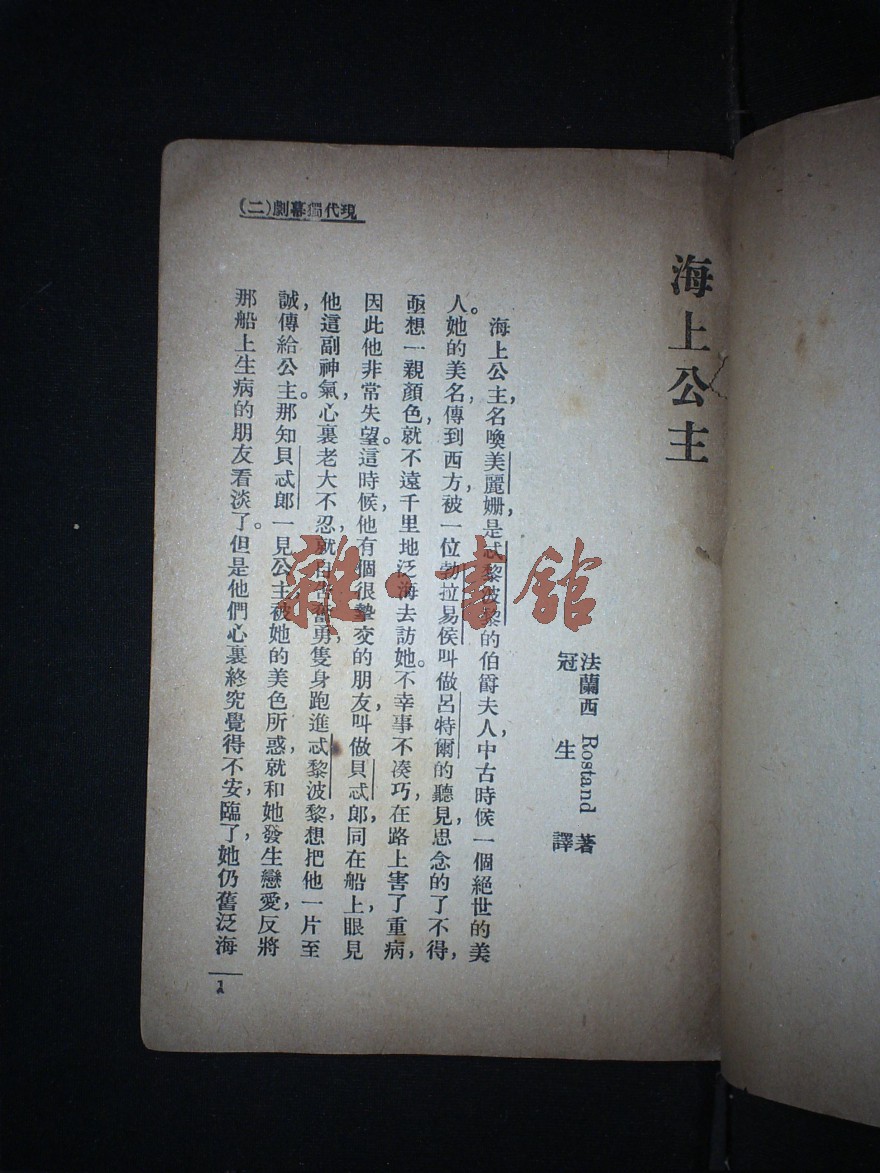 現代獨幕劇(二)
海上公主
法蘭西 Rostand 著
冠生譯
海上公主,名喚美麗姍,是忒黎波黎的伯爵夫人,中古時候一個絕世的美
人。她的美名,傳到西方,被一位勃拉易侯叫做呂特爾的聽見,思念的了不得,
亟想一親顏色,就不遠千里地泛海去訪她。不幸事不凑巧,在路上害了重病,
因此他非常失望。這時候,他有個很摯交的朋友,叫做貝忒郎,同在船上,眼見
他這副神氣,心裏老大不忍,就自告奮勇,隻身跑進忒黎波黎,想把他一片至
誠,傳給公主。那知貝忒郎一見公主,被她的美色所惑,就和她發生戀愛,反將
那船上生病的朋友看淡了。但是他們心裏終究覺得不安,臨了,她仍舊泛海
1
雜·書館